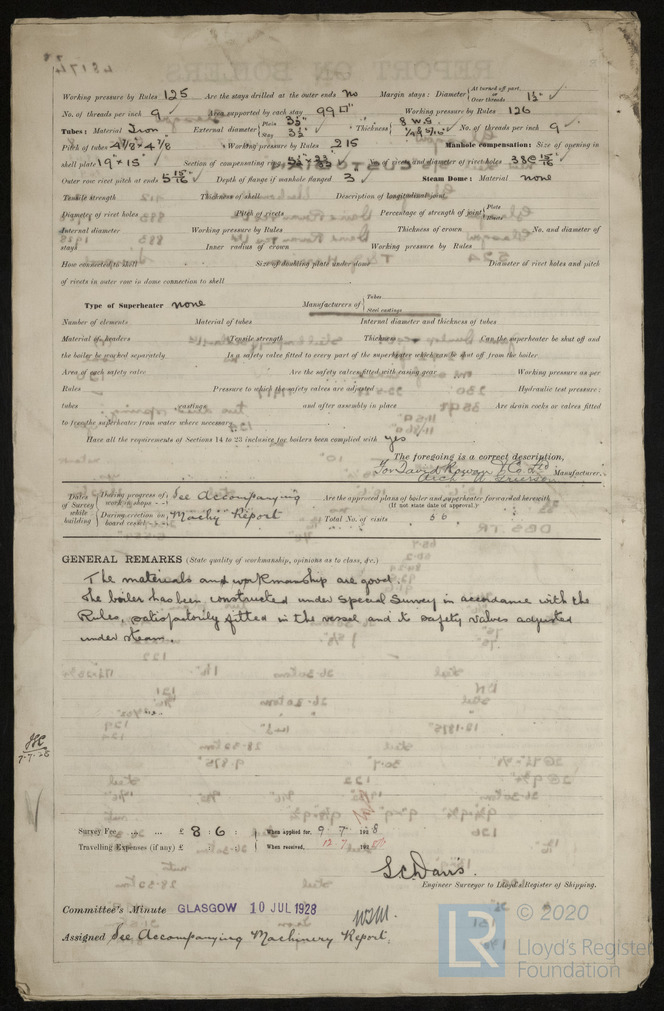 Working pressure by Rules 125 Are the stays drilled at the outer ends No Margin stays: Diameter { At turned off part, Over threads 1½"
No. of threads per inch 9 Area supported by each stay 99 □" Working pressure by Rules 126
Tubes: Material Iron External diameter { Plain 3½" Stay 3½" Thickness { 8 W.G. ¼ & 5/16" No. of threads per inch 9
Pitch of tubes 4⅞" × 4⅞ Working pressure by Rules 215 Manhole compensation: Size of opening in
shell plate 19" × 15 Section of compensating ring No. of rivets and diameter of rivet holes
Outer row rivet pitch at ends 5 15/16" Depth of flange if manhole flanged 3 Steam Dome: Material none
Tensile strength Thickness of shell Description of longitudinal joint
Diameter of rivet holes Pitch of rivets Percentage of strength of joint { Plate Rivets
Internal diameter Working pressure by Rules Thickness of crown No. and diameter of
stays Inner radius of crown Working pressure by Rules
How connected to shell Size of doubling plate under dome Diameter of rivet holes and pitch
of rivets in outer row in dome connection to shell
Type of Superheater none Manufacturers of { Tubes Steel castings
Number of elements Material of tubes Internal diameter and thickness of tubes
Material of headers Tensile strength Thickness Can the superheater be shut off and
the boiler be worked separately Is a safety valve fitted to every part of the superheater which can be shut off from the boiler
Area of each safety valve Are the safety valves fitted with easing gear Working pressure as per
Rules Pressure to which the safety valves are adjusted Hydraulic test pressure:
tubes castings and after assembly in place Are drain cocks or valves fitted
to free the superheater from water where necessary
Have all the requirements of Sections 14 to 23 inclusive for boilers been complied with yes
The foregoing is a correct description,
For David Rowan & Co. Ltd Manufacturer.
Dates of Survey while building { During progress of work in shops - - See Accompanying Are the approved plans of boiler and superheater forwarded herewith (If not state date of approval.)
During erection on board vessel - - - Machy Report Total No. of visits
GENERAL REMARKS (State quality of workmanship, opinions as to class, &c.)
The materials and workmanship are good.
The boiler has been constructed under special survey in accordance with the
Rules, satisfactorily fitted in the vessel and its safety valves adjusted
under steam.
7.7.28
Survey Fee ... ... £ 8 : 6 : When applied for, 9 . 7 . 1928
Travelling Expenses (if any) £ : : When received, 12.7.1928
S.C. Davis.
Engineer Surveyor to Lloyd's Register of Shipping.
Committee's Minute GLASGOW 10 JUL 1928
Assigned See Accompanying Machinery Report.
© 2020
LR Lloyd's Register
Foundation